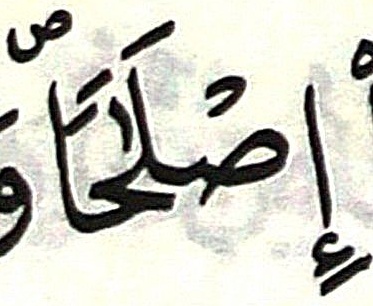 إِصْلَٰحًا